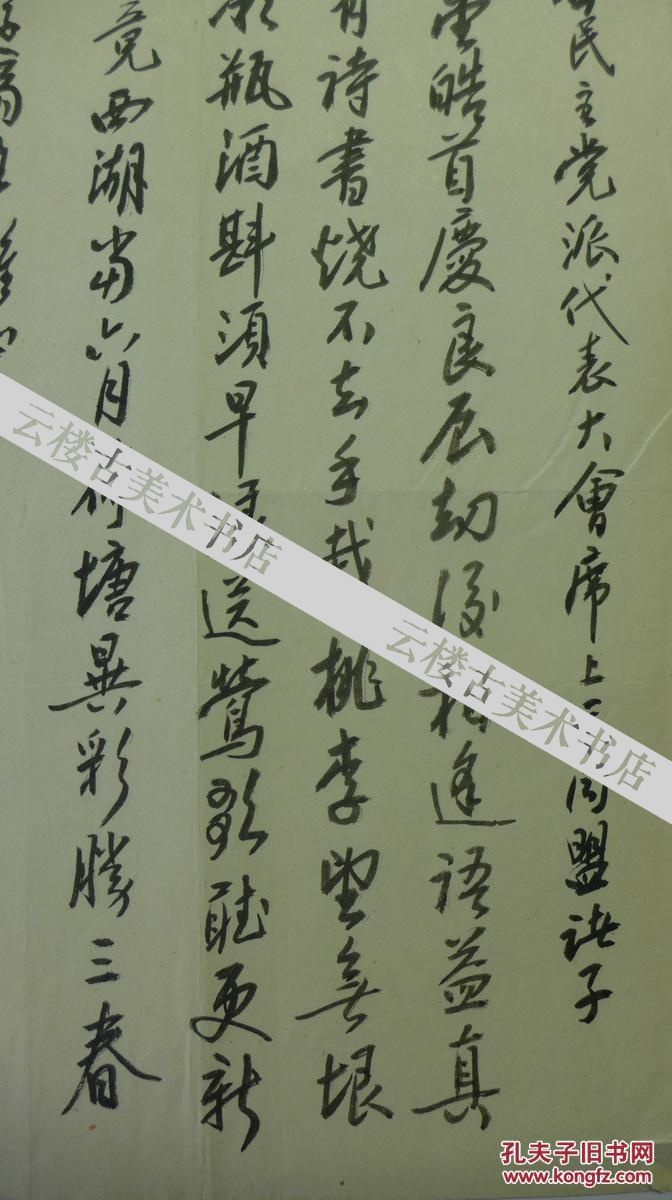 民主党派代表大會席上呈同盟諸子
皓首慶良辰劫後相逢語益真
有詩書燒不去手栽桃李望無垠
瓶酒斟須早送鶯歌聽更新
竟西湖當六月荷塘異彩勝三春
云楼古美术书店
云楼古美术书店
孔夫子旧书网
www.kongfz.com